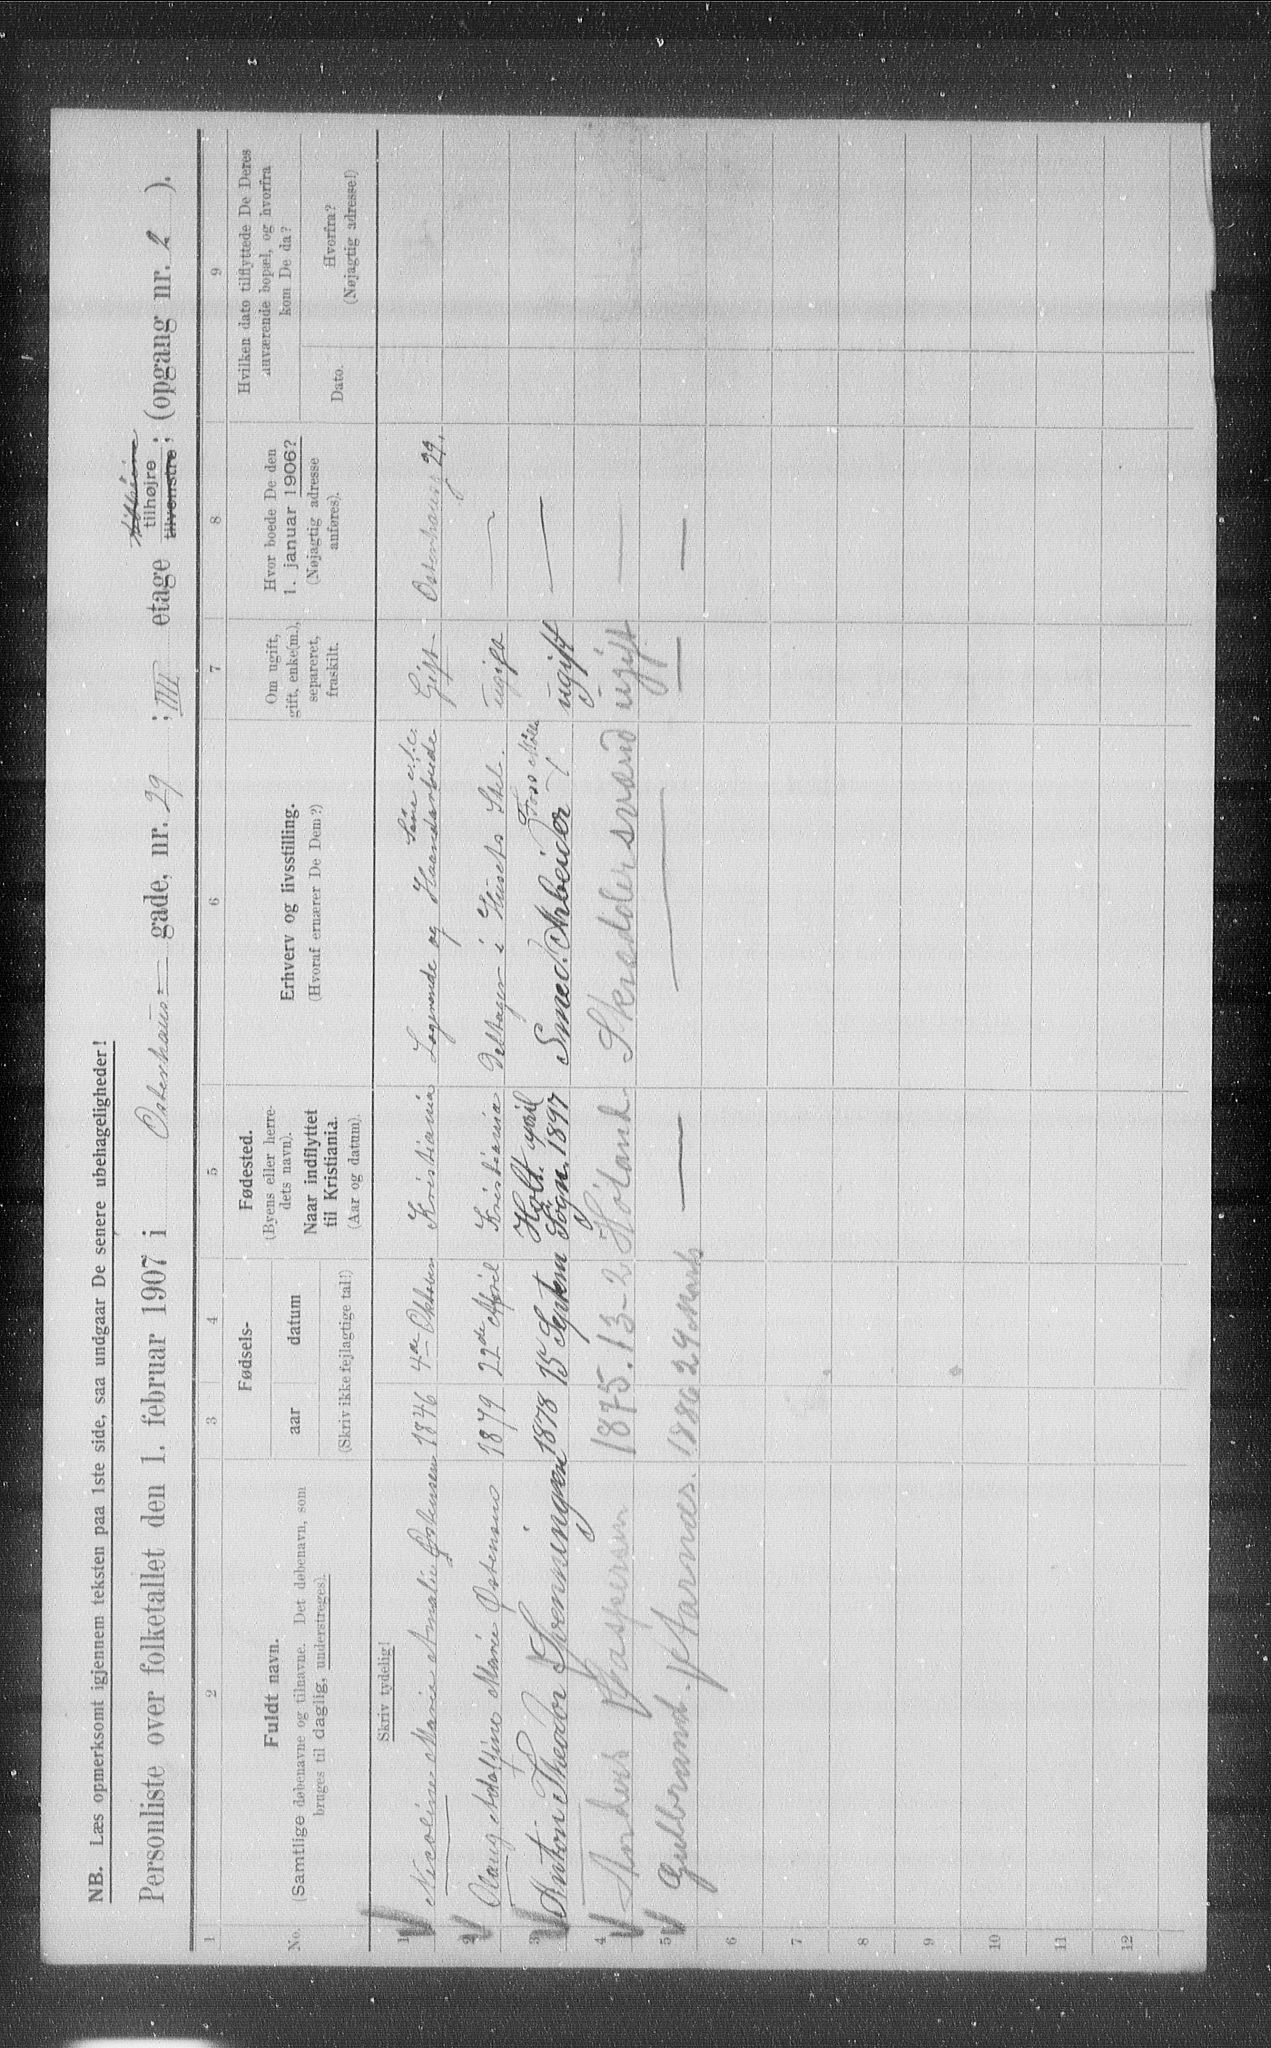 NB. Læs opmerksomt igjennem teksten paa 1ste side, saa undgaar De senere ubehageligheder!
Personliste over folketallet den 1. februar 1907 i Osterhaus- gade, nr. 29 ; IIII etage tilhøjre tilvenstre ; (opgang nr. 2 ).
1 2 3 4 5 6 7 8 9
No.
Fuldt navn.
(Samtlige døbenavne og tilnavne. Det døbenavn, som
bruges til daglig, understreges).
Fødsels-
aar datum
(Skriv ikke fejlagtige tal!)
Fødested.
(Byens eller herre-
dets navn).
Naar indflyttet
til Kristiania.
(Aar og datum).
Erhverv og livsstilling.
(Hvoraf ernærer De Dem?)
Om ugift,
gift, enke(m.),
separeret,
fraskilt.
Hvor boede De den
1. januar 1906?
(Nøjagtig adresse
anføres).
Hvilken dato tilflyttede De Deres
nuværende bopæl, og hvorfra
kom De da?
Dato.
Hvorfra?
(Nøjagtig adresse!)
Skriv tydelig!
1 Nicoline Marie Amalie Østensen 1846 4de Oktober Kristiania Logerende og Haandarbeide Gift Osterhausg 29.
2 Olaug Adolfine Marie Østensen 1879 22de April Kristiania Deltager i Husets Stel. ugift —
Holt april Foss Mølle
3 Anton Theodor Svenningsen 1878 15 Septem Sogn. 1897 Smed. Arbeider ugift —
4 Anders Kaspersen 1875. 13-2 Høland. Skreddersvend ugift —
5 Gulbrand Aarnæs. 1886 29 Marts — — — —
6
7
8
9
10
11
12